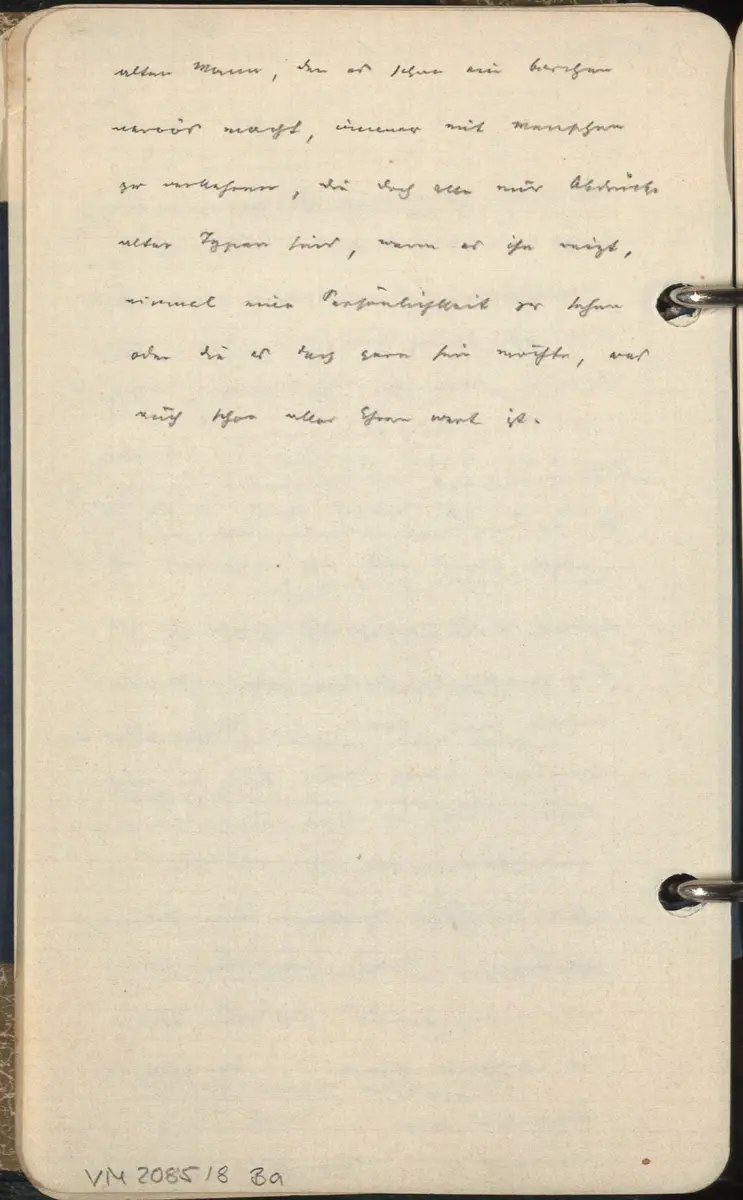 alten Mann, den es schon ein bisschen
nervös macht, immer mit Menschen
zu verkehren, die doch alle nur Abdrücke
alter Typen sind, wenn es ihn reizt,
einmal eine Persönlichkeit zu sehen
oder die es doch gern sein möchte, was
auch schon aller Ehren wert ist.
VM 2085/8 Ba